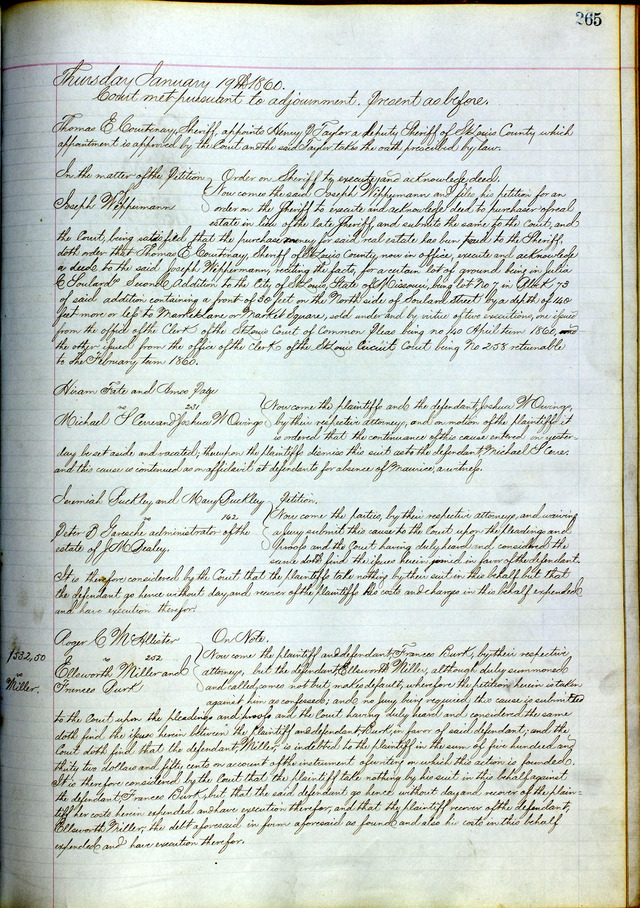 265
Thursday January 19th 1860.
Court met pursuant to adjournment. Present as before.
Thomas E Courtenay, Sheriff, appoints Henry D Taylor a deputy Sheriff of St Louis County which
appointment is approved by the Court and the said Taylor takes the oath prescribed by law.
In the matter of the Petition Order on Sheriff to execute and acknowledge deed.
of Now comes the said Joseph Wippermann and files his petition for an
Joseph Wippermann order on the Sheriff to execute and acknowledge deed to purchaser of real
estate in lieu of the late Sheriff, and submits the same to the Court, and
the Court, being satisfied, that the purchase money for said real estate has been paid to the Sheriff,
doth order that Thomas E Courtenay, Sheriff of St Louis County, now in office, execute and acknowledge
a deed to the said Joseph Wippermann, reciting the facts, for a certain lot of ground being in Julia
C Soulards Second Addition to the City of St Louis, State of Missouri, being lot No 7 in Block 73
of said addition containing a front of 30 feet on the North side of Soulard Street by a depth of 140
feet more or less to Market lane or Market Square, sold under and by virtue of two executions, one issued
from the office of the Clerk of the St Louis Court of Common Pleas being no 140 April term 1860, and
the other issued from the office of the Clerk of the St Louis Circuit Court being No 258 returnable
to the February term 1860.
Hiram Fate and Amos Page
vs 231 Now come the plaintiff and the defendant, Joshua W Owings,
Michael S Cerre and Joshua W Owings by their respective attorneys, and on motion of the plaintiff it
is ordered that the continuance of this cause entered on yester-
day be set aside and vacated; thereupon the plaintiffs dismiss this suit as to the defendant, Michael S Cerre,
and this cause is continued as on affidavit of defendants for absence of Maurice, a witness.
Jeremiah Buckley and Mary Buckley Petition.
vs 142 Now come the parties, by their respective attorneys, and waiving
Peter B Garesche administrator of the a jury submit this cause to the Court upon the pleadings and
estate of J M Dealey. proofs and the Court having duly heard and considered the
same doth find the issues herein joined in favor of the defendant.
It is therefore considered by the Court that the plaintiffs take nothing by their suit in this behalf but that
the defendant go hence without day and recover of the plaintiffs his costs and charges in this behalf expended
and have execution therefor.
Roger C McAllister On Note.
$532,50 vs 252 Now come the plaintiff and defendant, Frances Burk, by their respective
Ellsworth Miller and attorneys, but the defendant, Ellsworth Miller, although duly summoned
vs Miller. Frances Burk and called, comes not but makes default, wherefore the petition herein is taken
against him as confessed; and no jury being required, the cause is submitted
to the Court upon the pleadings and proofs and the Court having duly heard and considered the same
doth find the issues herein between the plaintiff and defendant, Burk, in favor of said defendant; and the
Court doth find that the defendant, Miller, is indebted to the plaintiff in the sum of five hundred and
thirty two dollars and fifty cents on account of the instrument of writing on which the action is founded.
It is therefore considered by the Court that the plaintiff take nothing by his suit in this behalf against
the defendant, Frances Burk, but that the said defendant go hence without day and recover of the plain-
tiff her costs herein expended and have execution therefor, and that the plaintiff recover of the defendant,
Ellsworth Miller, the debt aforesaid in form aforesaid as found and also his costs in this behalf
expended and have execution therefor.